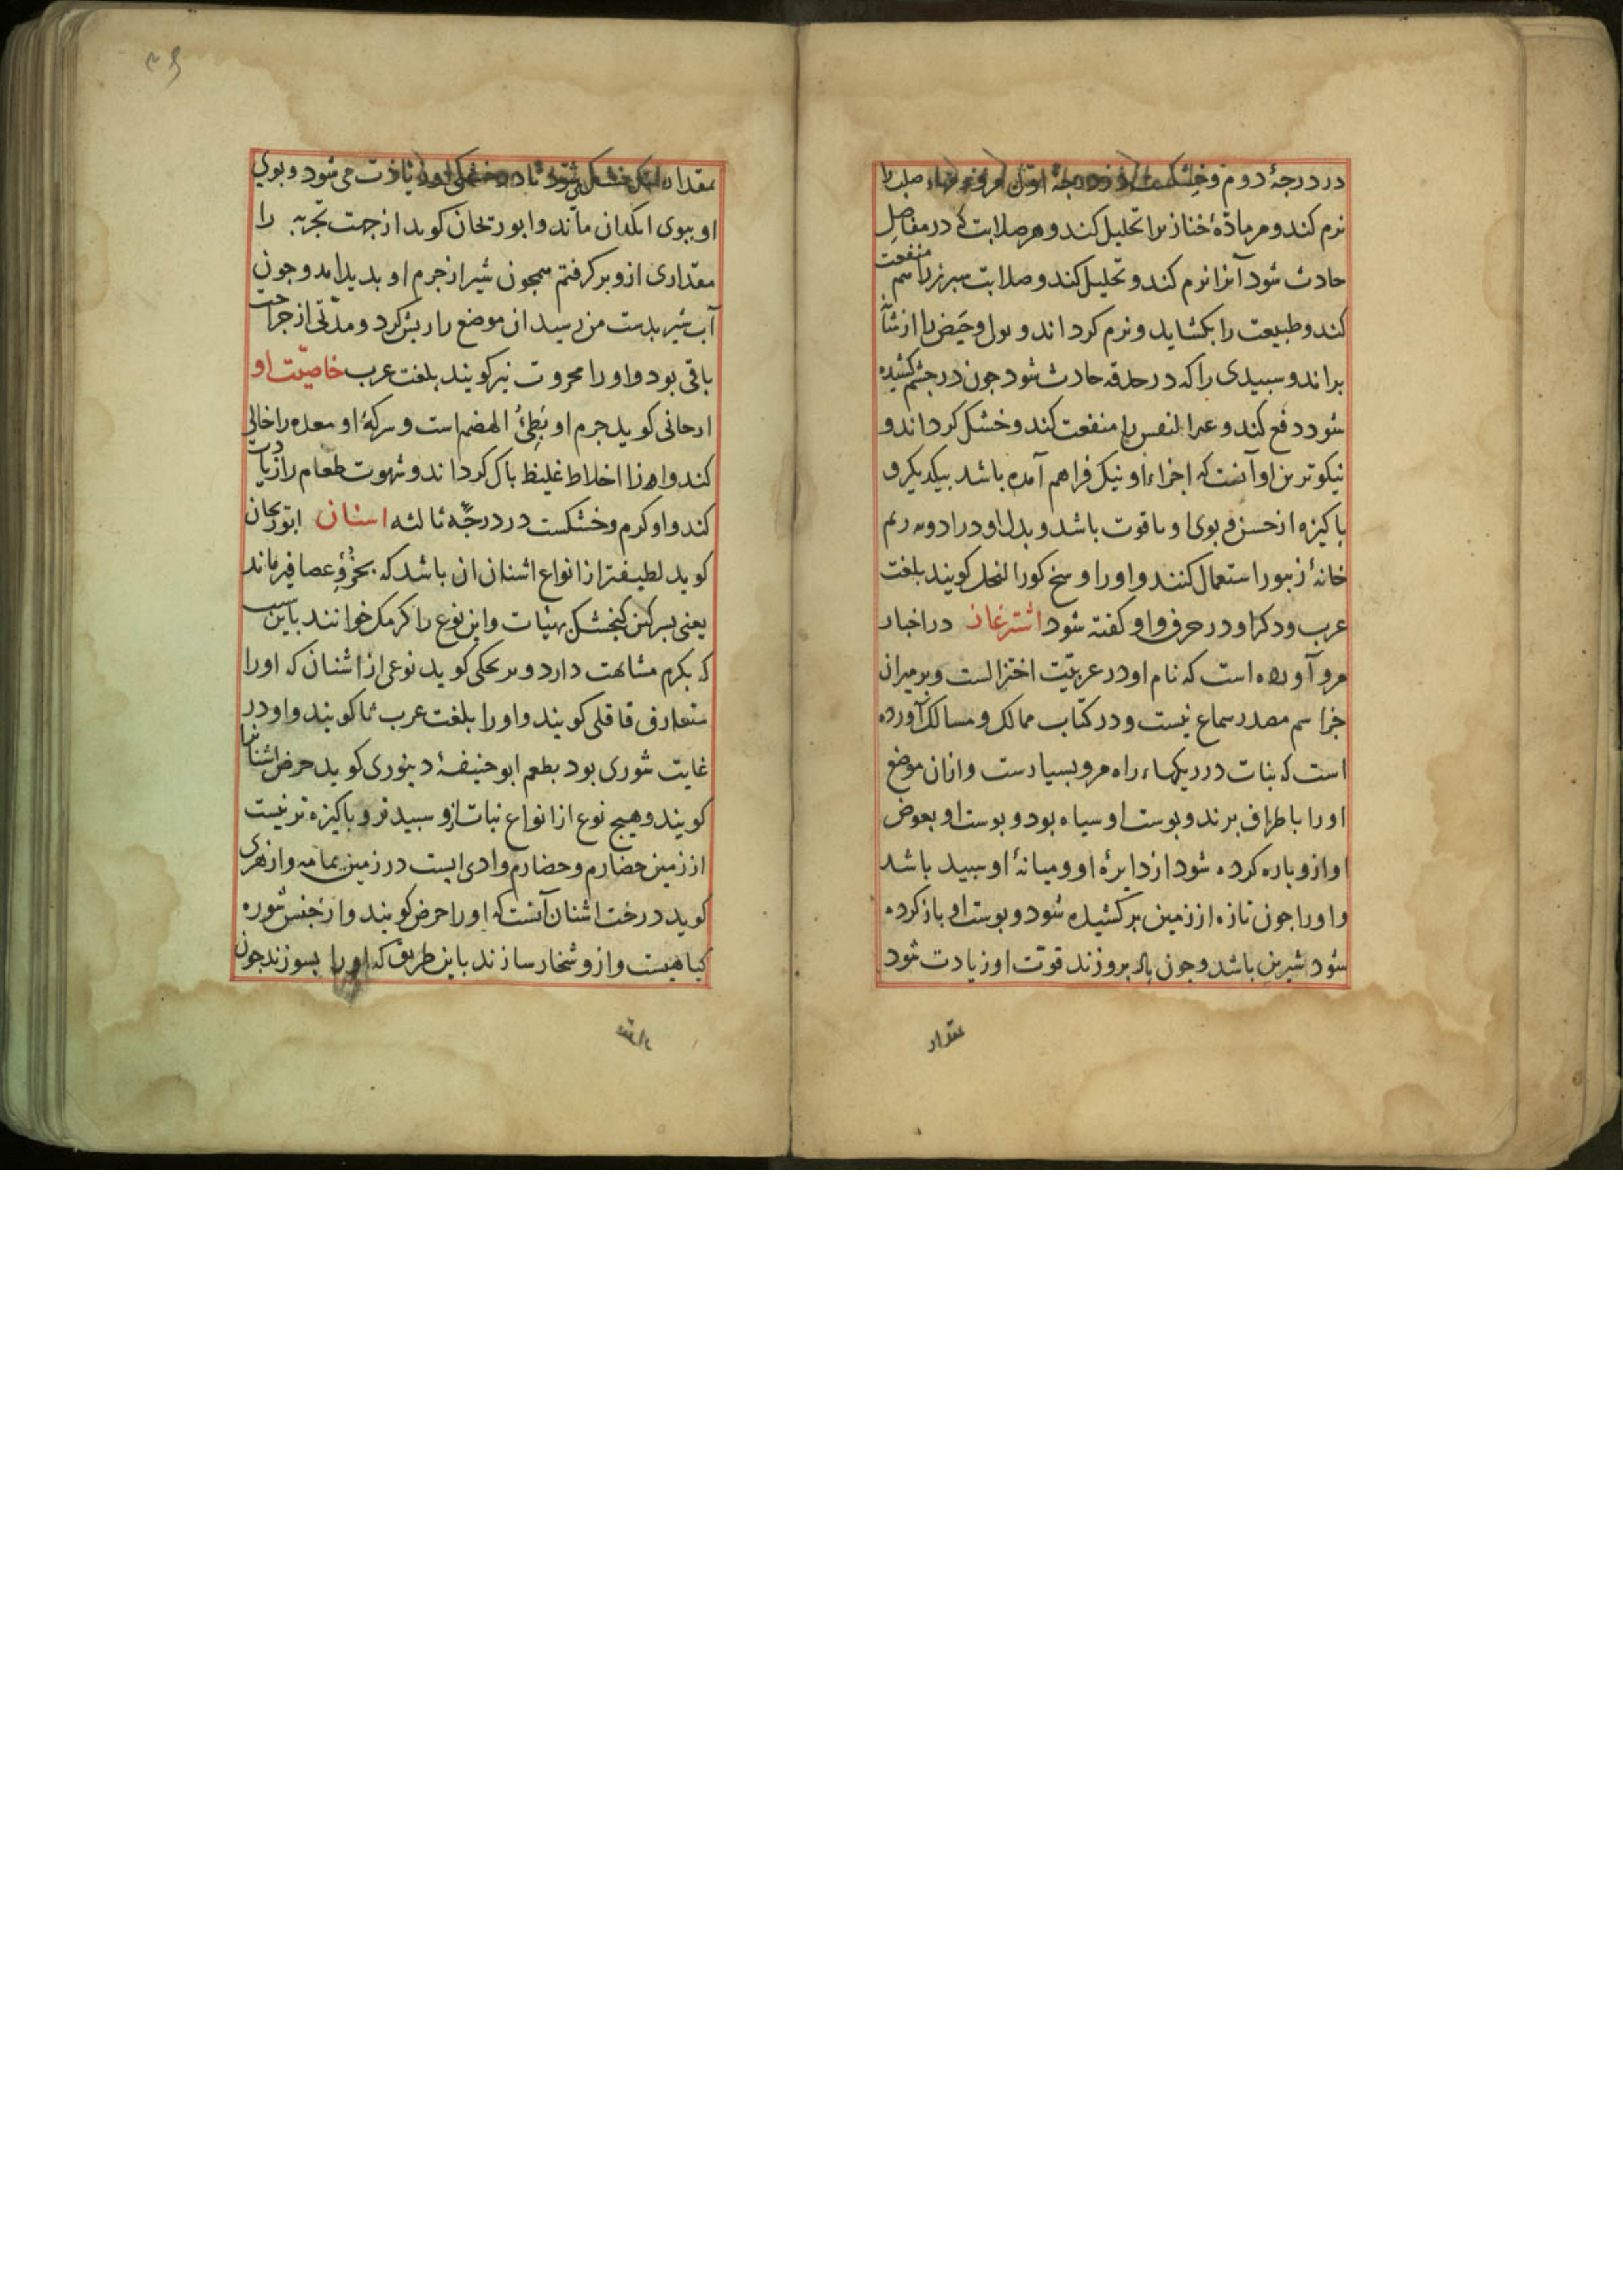 در درجهٔ دوم و خشکست در درجهٔ اول صلب را
نرم کند و مر مادّهٔ خنازیر را تحلیل کند و هر صلابت که در مفاصل
حادث شود آنرا نرم کند و تحلیل کند و صلابت سبرز را هم منفعت
کند و طبیعت را بکشاید و نرم کرداند و بول و حَیض را از
براند و سبیدی را که در حدقه حادث شود جون در جشم کشیده
شود دفع کند و عسر النفس را منفعت کند و خشک کرداند و
نیکوترین او آنست که اجزاء او نیک فراهم آمده باشد بیکدیکر و
باکیزه از حسن و بوی او با قوت باشد و بدل او در ادویه ریم
خانهٔ زنبور استعمال کنند و او را وسخ کور النحل کویند بلغت
عرب و ذکر او در حرف واو کفته شود اشترغاز در اخبار
مرو آورده است که نام او در عربیّت اختزالست و بر میزان
جز اسم مصدر سماع نیست و در کتاب ممالک و مسالک آورده
است که نبات در ریکهاء راه مرو بسیارست و ازان موضع
او را باطراف برند و بوست او سیاه بود و بوست او بعوض
او ازو باره کرده شود از دایرهٔ او و میانهٔ او سبید باشد
و او را جون تازه از زمین بر کشیده شود و بوست او باز کرده
شود شیرین باشد و جون بران روزند قوّت او زیادت شود
مقدار
بمقدار انک خشک شود زیادت می شود و بوی
او ببوی انکدان ماند و ابوریحان کوید از جهت تجربه را
مقداری ازو بر کرفتم همجون شیر از جرم او بدید امد و جون
آب شیر بدست من رسید ان موضع را ریش کرد و مدّتی از جراحت
باقی بود و او را محروت نیز کویند بلغت عرب خاصیّت او
ارجانی کوید جرم او بَطِئُ الهضم است و سرکهٔ او معده را خالی
کند و او را از اخلاط غلیظ باک کرداند و شهوت طعام را زیادت
کند و او کرم و خشکست در درجهٔ ثالثه اشنان ابوریحان
کوید لطیفتر از انواع اشنان ان باشد که بخُرؤِ عصافیر ماند
یعنی بسرکین کنجشک بهیئات و این نوع را کرمک خوانند باین سبب
که بکرم مشابهت دارد و بر محکی کوید نوعی از اشنان که او را
متعارف قاقلی کویند و او را بلغت عرب کویند و او در
غایت شوری بود بطعم ابو حنیفهٔ دینوری کوید حرض اشنان را
کویند و هیج نوع از انواع نبات ازو سبیدتر و باکیزه تر نیست
از زمین حضارم و حضارم وادی ایست در زمین یمامه و ازهری
کوید درخت اشنان آنست که او را حرض کویند و از جنس شوره
کیاهیست و ازو شخار سازند باین طریق که او را بسوزند جون